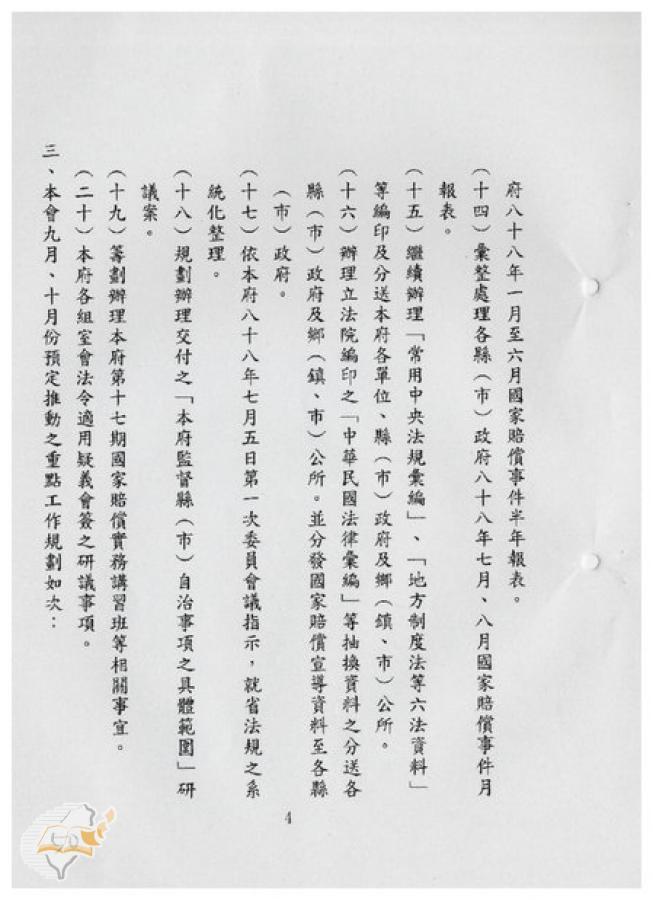 府八十八年一月至六月國家賠償事件半年報表。
(十四)彙整處理各縣(市)政府八十八年七月、八月國家賠償事件月
報表。
(十五)繼續辦理「常用中央法規彙編」、「地方制度法等六法資料」
等編印及分送本府各單位、縣(市)政府及鄉(鎮、市)公所。
(十六)辦理立法院編印之「中華民國法律彙編」等抽換資料之分送各
縣(市)政府及鄉(鎮、市)公所。並分發國家賠償宣導資料至各縣
(市)政府。
(十七)依本府八十八年七月五日第一次委員會議指示,就省法規之系
統化整理。
(十八)規劃辦理交付之「本府監督縣(市)自治事項之具體範圍」研
議案。
(十九)籌劃辦理本府第十七期國家賠償實務講習班等相關事宜。
(二十)本府各組室會法令適用疑義會簽之研議事項。
三、本會九月、十月份預定推動之重點工作規劃如次:
4